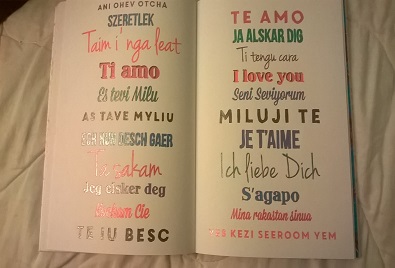 ANI OHEV OTCHA
SZERETLEK
Taim i' nga leat
Ti amo
Es tevi Milu
AS TAVE MYLIU
ECH HUN DESCH GAER
Te sakam
Jeg elsker deg
Kocham Cie
TE IU BESC
TE AMO
JA ALSKAR DIG
Ti tengu cara
I love you
Seni Seviyorum
MILUJI TE
JE T'AIME
Ich liebe Dich
S'agapo
Mina rakastan sinua
YES KEZI SEEROOM YEM